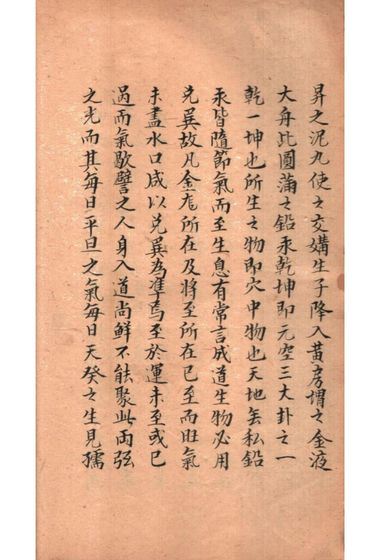 昇之泥丸使之交媾生子降入黃房謂之金液
大舟此圓蒲之鉛汞乾坤即元空三大卦之一
乾一坤也所生之物即穴中物也天地無私鉛
汞皆隨節氣而至生息有常言成道生物必用
兌巽故凡金龙所在及將至所在已至而旺氣
未盡水口咸以兌巽為準焉至於運未至或已
過而氣歇譬之人身入道尚鮮不能聚此兩弦
之光而其每日平旦之氣每日天癸之生見孺